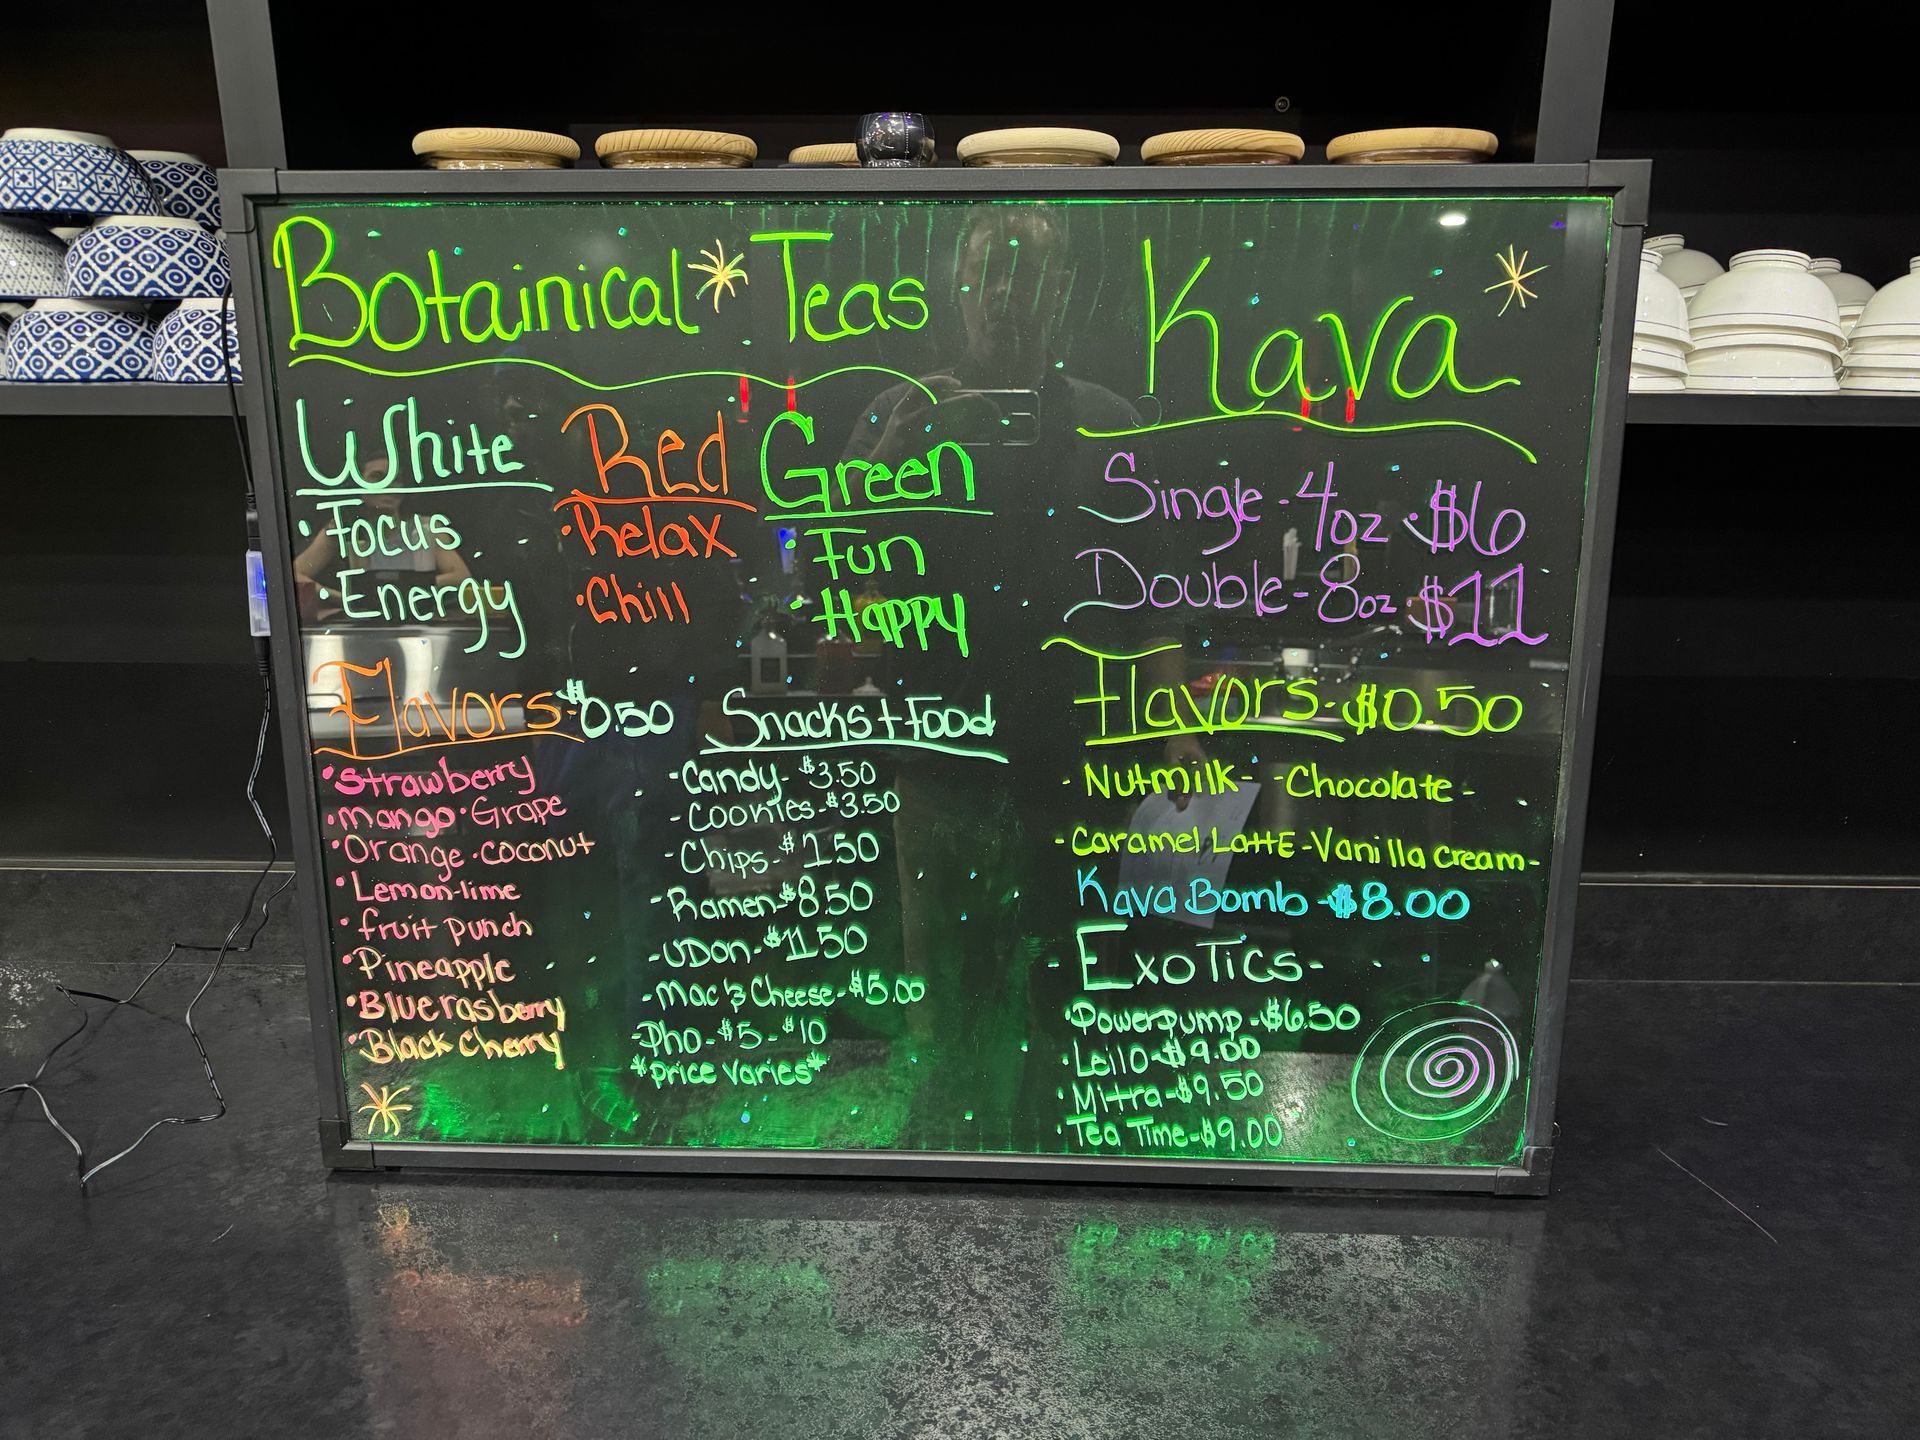 Botainical Teas
White
• Focus
• Energy
Red
• Relax
• Chill
Green
• Fun
• Happy
Flavors - $0.50
• Strawberry
• Mango • Grape
• Orange • Coconut
• Lemon-lime
• fruit punch
• Pineapple
• Blue rasberry
• Black Cherry
Snacks + Food
- Candy - $3.50
- Cookies - $3.50
- Chips - $1.50
- Ramen - $8.50
- UDon - $11.50
- Mac & Cheese - $5.00
- Pho - $5 - $10
*Price Varies*
Kava
Single - 4oz • $6
Double - 8oz • $11
Flavors - $0.50
- Nutmilk - - Chocolate -
- Caramel Latte - Vanilla Cream -
Kava Bomb - $8.00
- Exotics -
• Powerpump - $6.50
• Leilo - $9.00
• Mitra - $9.50
• Tea Time - $9.00